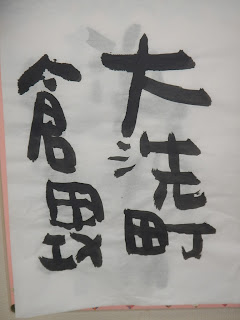 大洗町
倉敷